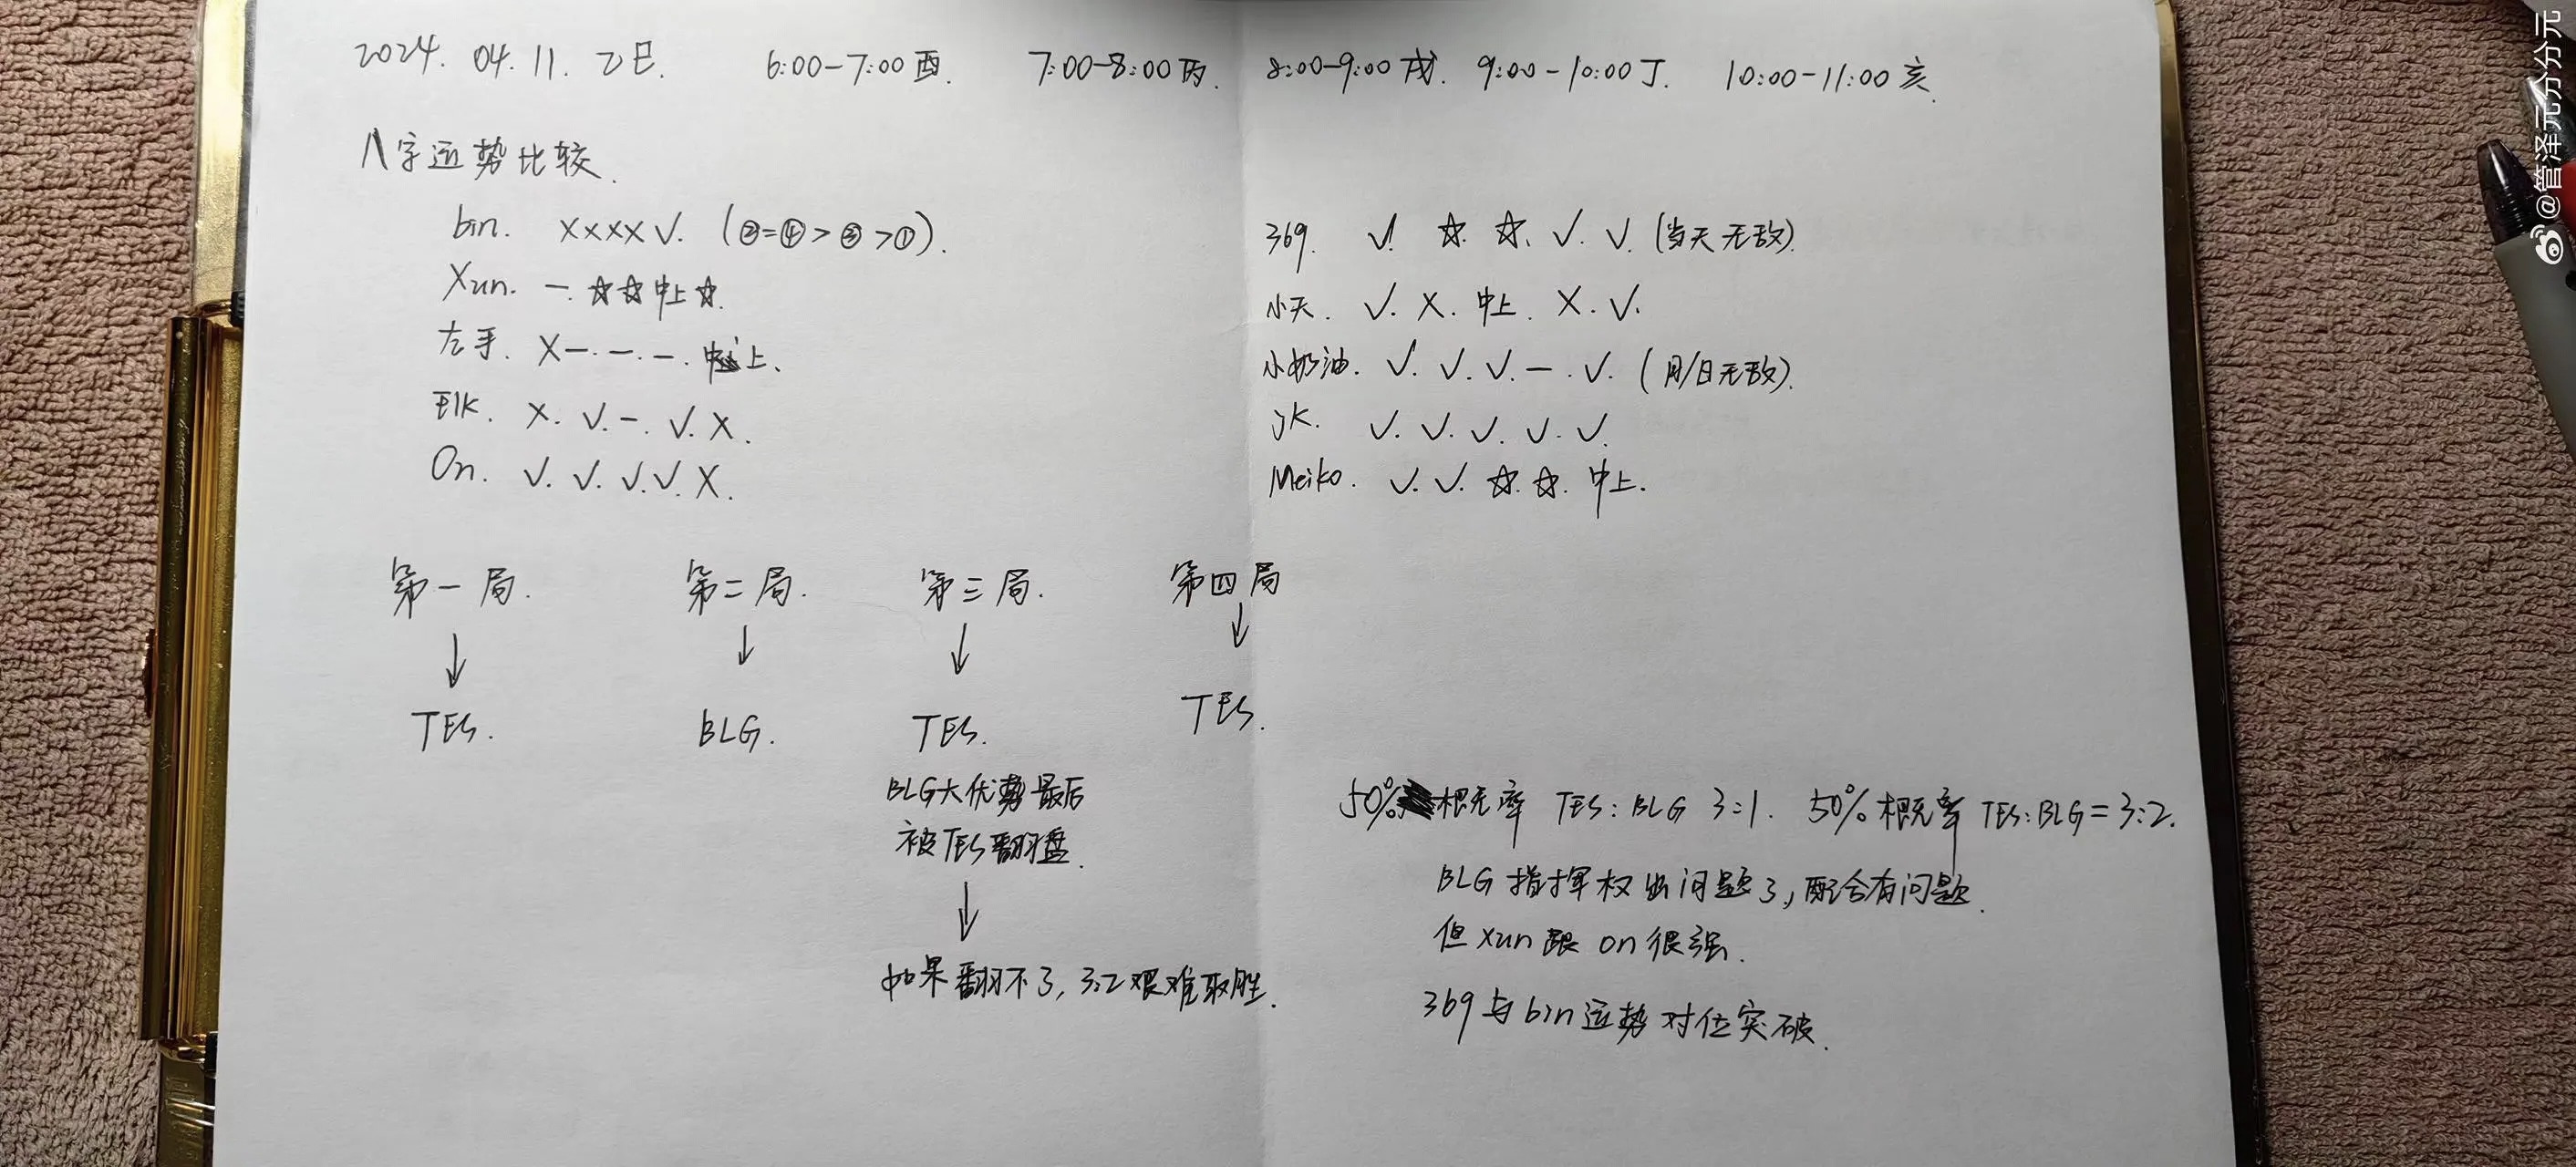 2024. 04. 11. 乙巳. 6:00-7:00 酉. 7:00-8:00 丙. 8:00-9:00 戌. 9:00-10:00 丁. 10:00-11:00 亥.
八字运势比较.
bin. X X X X √. (②=④>③>①).
Xun. 一. ☆ ☆ 中上 ☆.
左手. X 一. 一. 一. 中上.
Elk. X. √. 一. √. X.
On. √. √. √. √. X.
369. √. ☆. ☆. √. √. (当天无敌).
小天. √. X. 中上. X. √.
小奶油. √. √. √. 一. √. (月/日无敌).
JK. √. √. √. √. √.
Meiko. √. √. ☆. ☆. 中上.
第一局. 第二局. 第三局. 第四局
↓ ↓ ↓ ↓
TES. BLG. TES. TES.
BLG大优势最后
被TES翻盘.
↓
如果翻不了, 3:2艰难取胜.
50% 概率 TES:BLG 3:1. 50% 概率 TES:BLG=3:2.
BLG指挥权出问题了,配合有问题.
但xun跟on很强.
369与bin运势对位突破.
@管泽元分分元